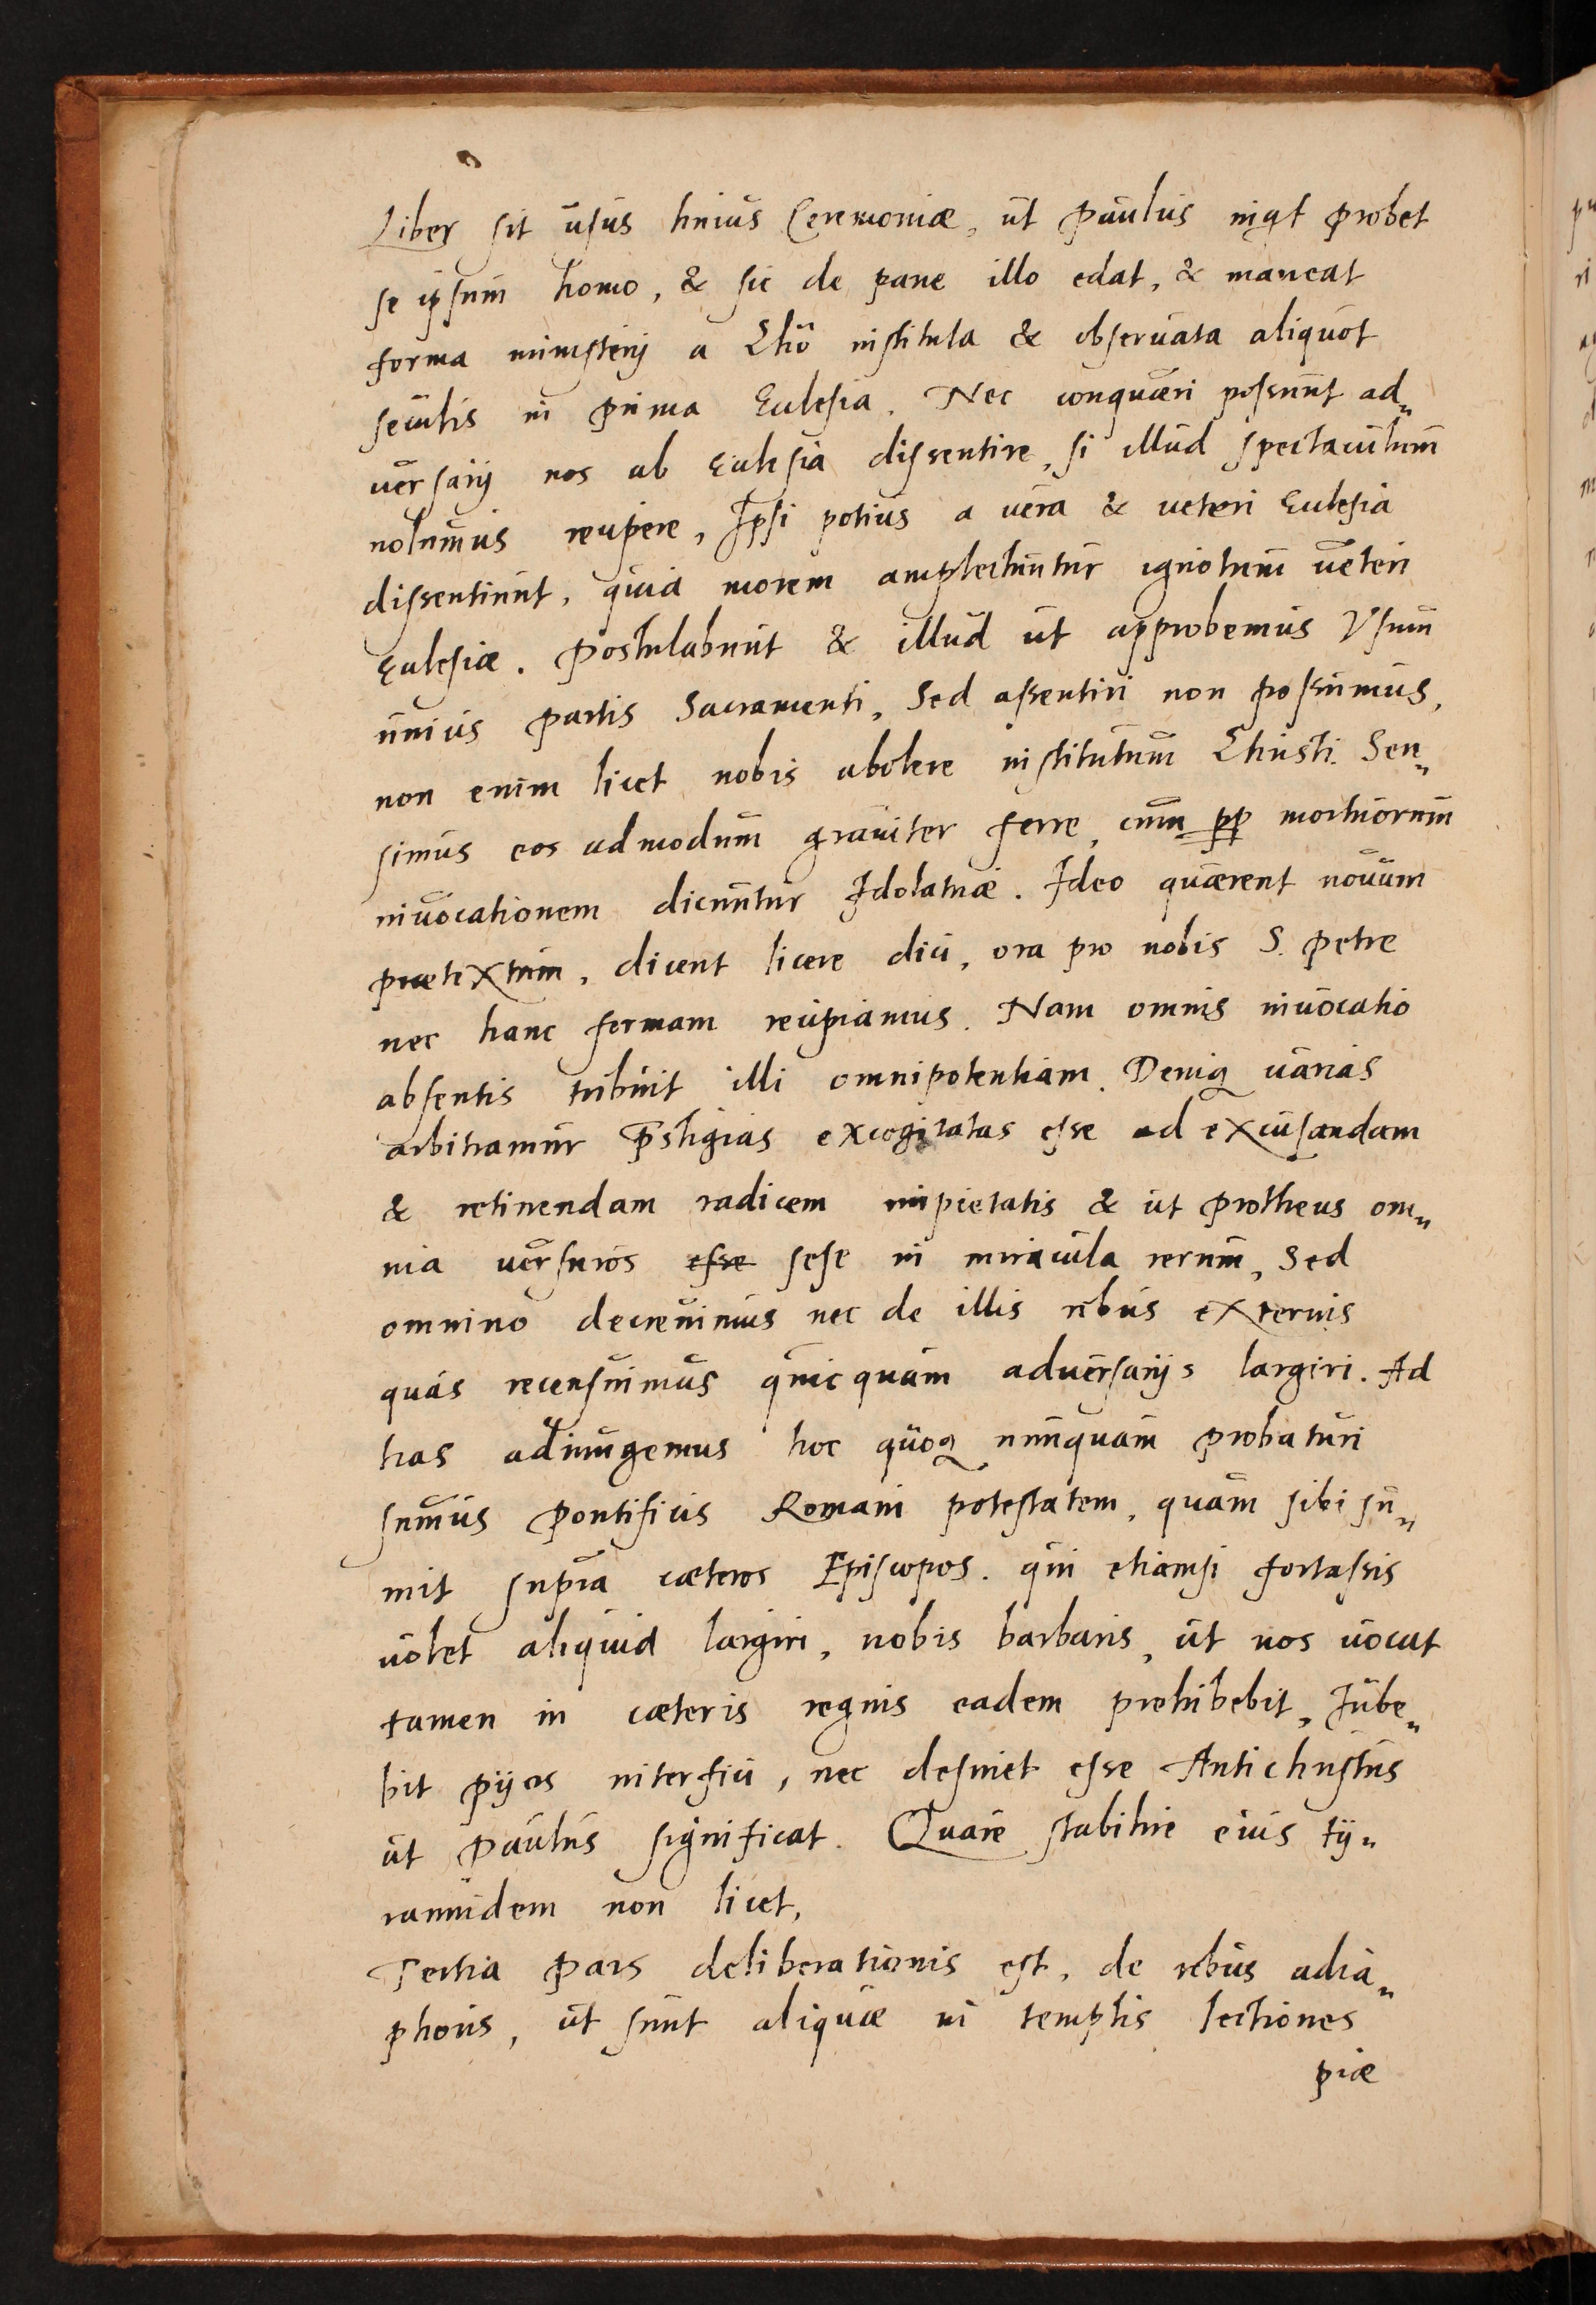 Liber sit usus huius Ceremoniæ, ut Paulus inqt probet
se ipsum homo, & sic de pane illo edat, & maneat
forma ministerij a Chro instituta & obseruata aliquot
seculis in prima Ecclesia. Nec conquæri possunt ad„
uersarij nos ab Ecclesia dissentire, si illud spectaculum
nolumus recipere, Ipsi potius a uera & ueteri Ecclesia
dissentiunt, quia morem amplectuntur ignotum ueteri
Ecclesiæ. Postulabunt & illud ut approbemus Vsum
unius partis Sacramenti, Sed assentiri non possumus,
non enim licet nobis abolere institutum Christi. Sen„
simus eos admodum grauiter ferre, cum pp mortuorum
inuocationem dicuntur Idolatræ. Ideo quærent nouum
prætextum, dicent licere dici, ora pro nobis S. Petre
nec hanc formam recipiamus. Nam omnis inuocatio
absentis tribuit illi omnipotentiam. Deniq uarias
arbitramur p̄stigias excogitatas esse ad excusandam
& retinendam radicem impietatis & ut Protheus om„
nia uersuros esse sese in miracula rerum, Sed
omnino decreuimus nec de illis rebus externis
quas recensuimus quicquam aduersarijs largiri. Ad
has adiungemus hoc quoq nunquam probaturi
sumus Pontificis Romani potestatem, quam sibi su„
mit supra cæteros Episcopos. qui etiamsi fortassis
uolet aliquid largiri, nobis barbaris, ut nos uocat
tamen in cæteris regnis eadem prohibebit, Iube„
bit pijos interfici, nec desinet esse Antichristus
ut Paulus significat. Quare stabilire eius ty„
rannidem non licet,
Tertia Pars deliberationis est, de rebus adia„
phoris, ut sunt aliquæ in templis lectiones
piæ